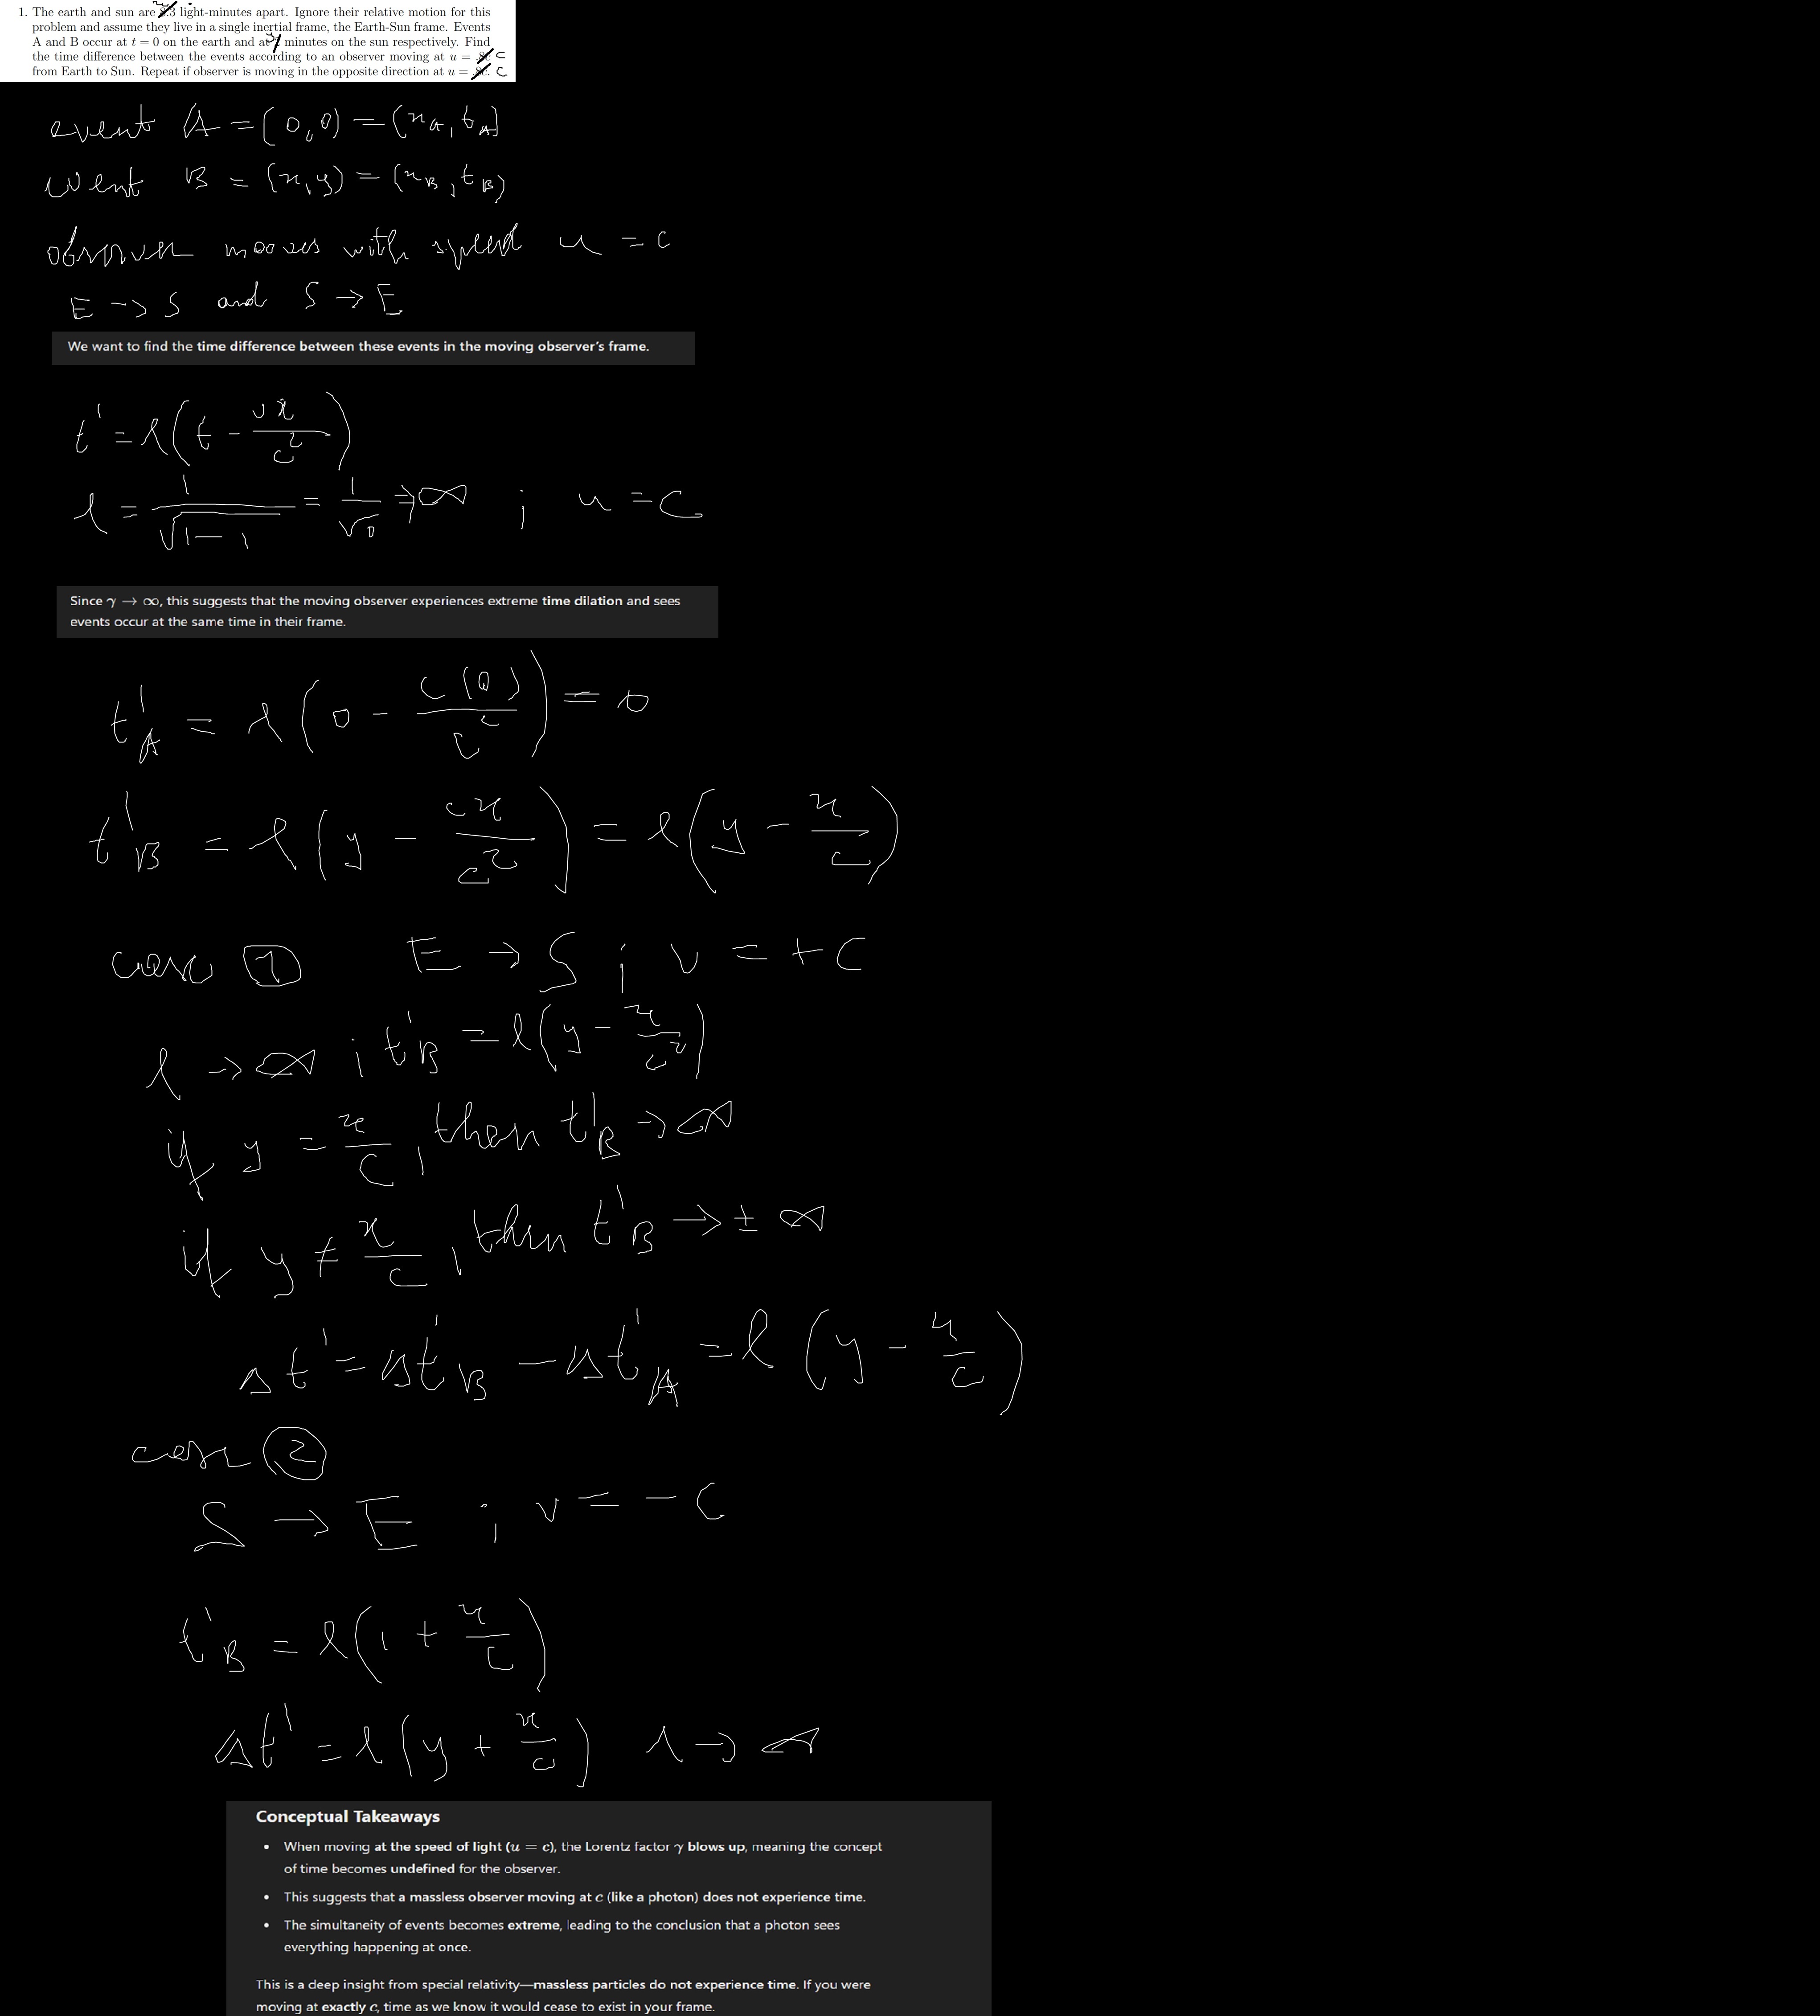 1. The earth and sun are x light-minutes apart. Ignore their relative motion for this
problem and assume they live in a single inertial frame, the Earth-Sun frame. Events
A and B occur at t = 0 on the earth and at y minutes on the sun respectively. Find
the time difference between the events according to an observer moving at u = c
from Earth to Sun. Repeat if observer is moving in the opposite direction at u = c
event A = (0,0) = (x_A, t_A)
event B = (x,y) = (x_B, t_B)
observer moves with speed u = c
E → S and S → E
We want to find the time difference between these events in the moving observer's frame.
t' = γ(t - vx/c²)
γ = 1/√(1-1) = 1/√0 → ∞ ; u = c
Since γ → ∞, this suggests that the moving observer experiences extreme time dilation and sees
events occur at the same time in their frame.
t'_A = γ(0 - c(0)/c²) = 0
t'_B = γ(y - cx/c²) = γ(y - x/c)
case ① E → S ; v = +c
γ → ∞ ; t'_B = γ(y - x/c²)
if y = x/c, then t'_B → ∞
if y ≠ x/c, then t'_B → ± ∞
Δt' = Δt'_B - Δt'_A = γ(y - x/c)
case ②
S → E ; v = -c
t'_B = γ(1 + x/c)
Δt' = γ(y + x/c) γ → ∞
Conceptual Takeaways
• When moving at the speed of light (u = c), the Lorentz factor γ blows up, meaning the concept
of time becomes undefined for the observer.
• This suggests that a massless observer moving at c (like a photon) does not experience time.
• The simultaneity of events becomes extreme, leading to the conclusion that a photon sees
everything happening at once.
This is a deep insight from special relativity—massless particles do not experience time. If you were
moving at exactly c, time as we know it would cease to exist in your frame.